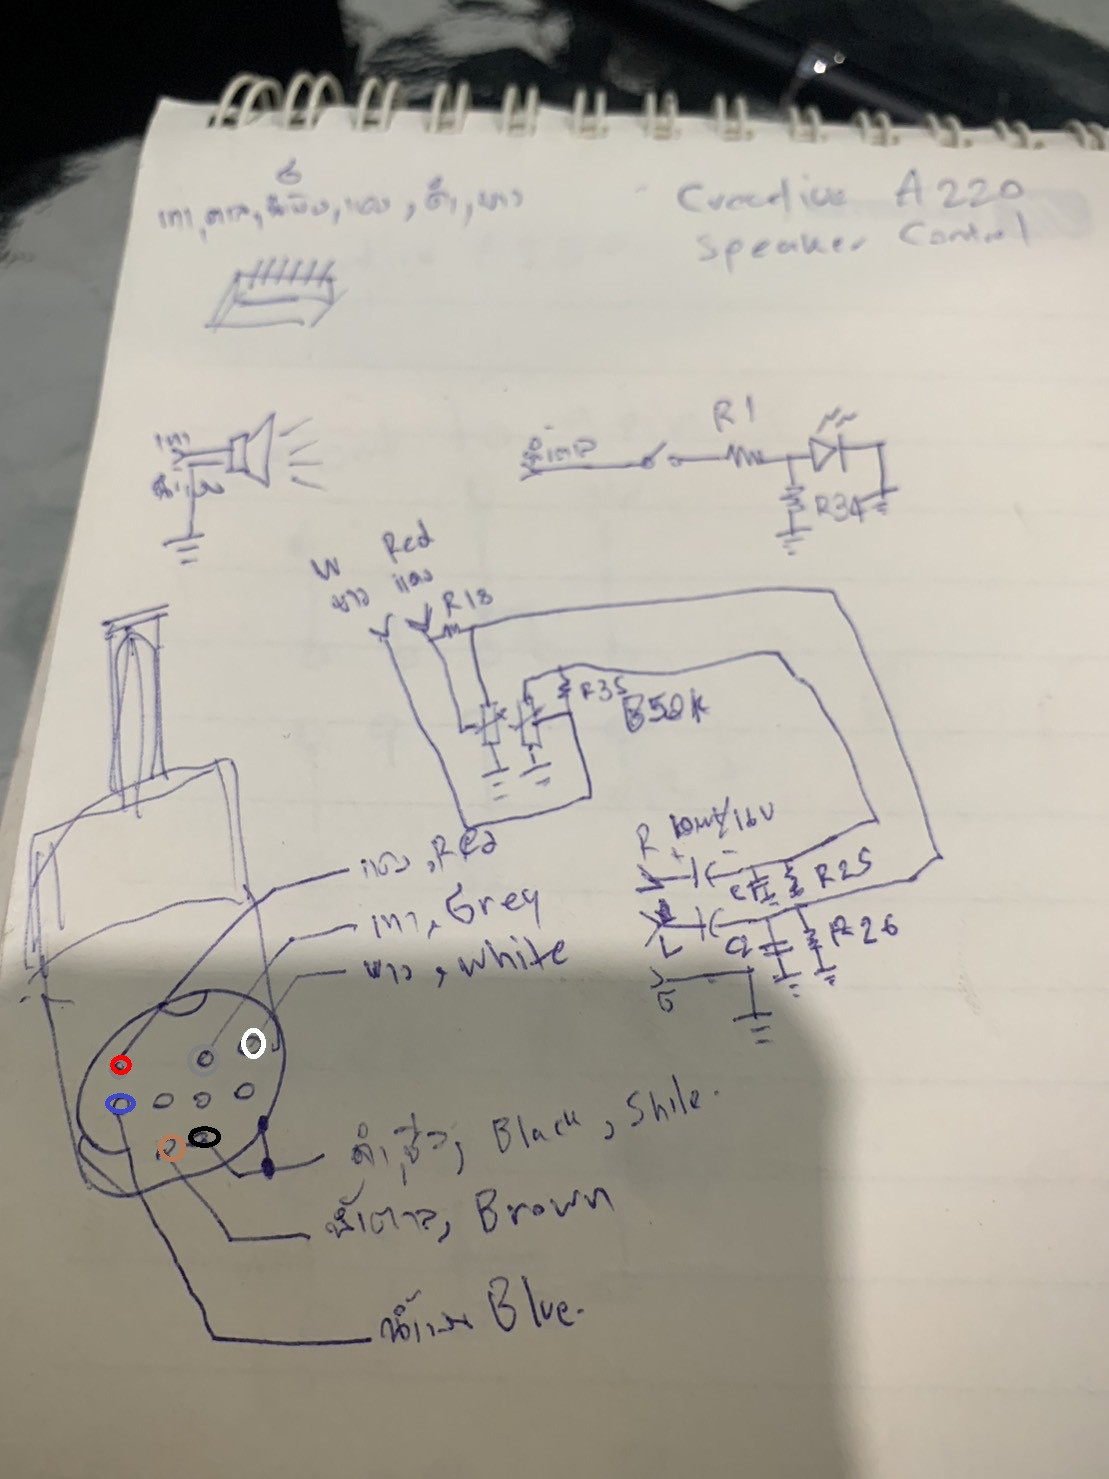 สี
เทา, ตาล, น้ำเงิน, แดง, ดำ, ขาว
Creative A220
Speaker Control
เทา
น้ำเงิน
น้ำตาล
R1
R34
W Red
ขาว แดง
R18
R35
B50K
R 10mf/16V
R25
L
R26
G
แดง, Red
เทา, Grey
ขาว, White
ดำ, ชีล, Black, Shile.
น้ำตาล, Brown
น้ำเงิน Blue.